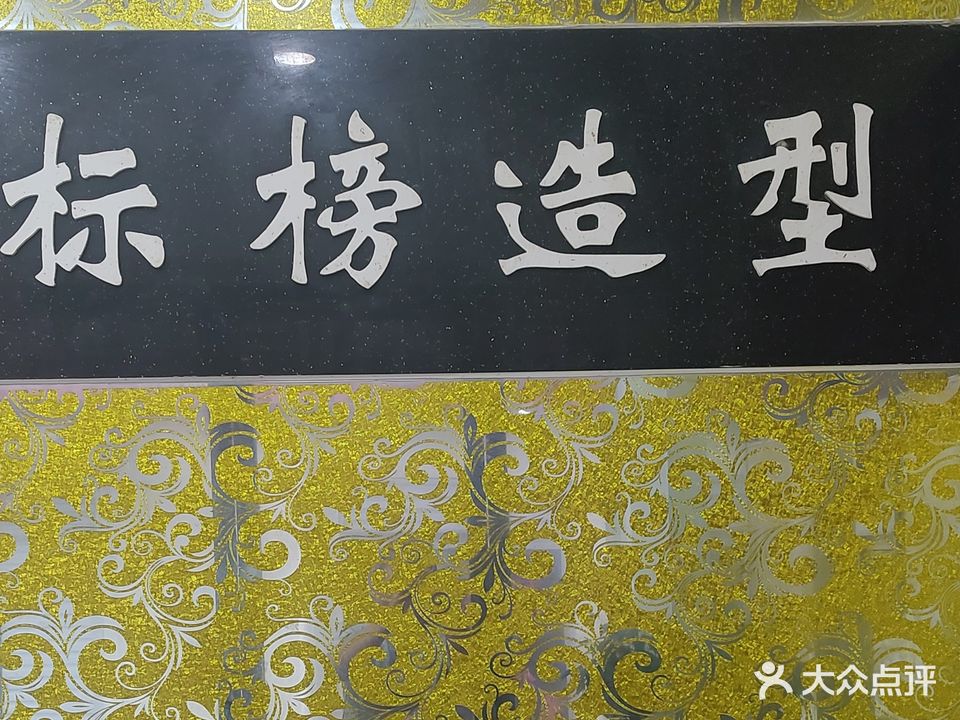 标榜造型
大众点评